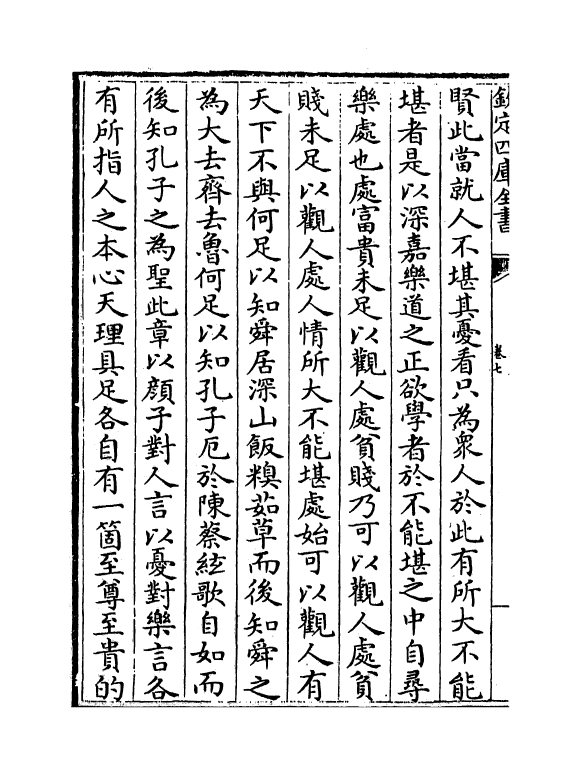 欽定四庫全書
卷七
賢此當就人不堪其憂看只為衆人於此有所大不能
堪者是以深嘉樂道之正欲學者於不能堪之中自尋
樂處也處富貴未足以觀人處貧賤乃可以觀人處貧
賤未足以觀人處人情所大不能堪處始可以觀人有
天下不與何足以知舜居深山飯糗茹草而後知舜之
為大去齊去魯何足以知孔子厄於陳蔡絃歌自如而
後知孔子之為聖此章以顔子對人言以憂對樂言各
有所指人之本心天理具足各自有一箇至尊至貴的